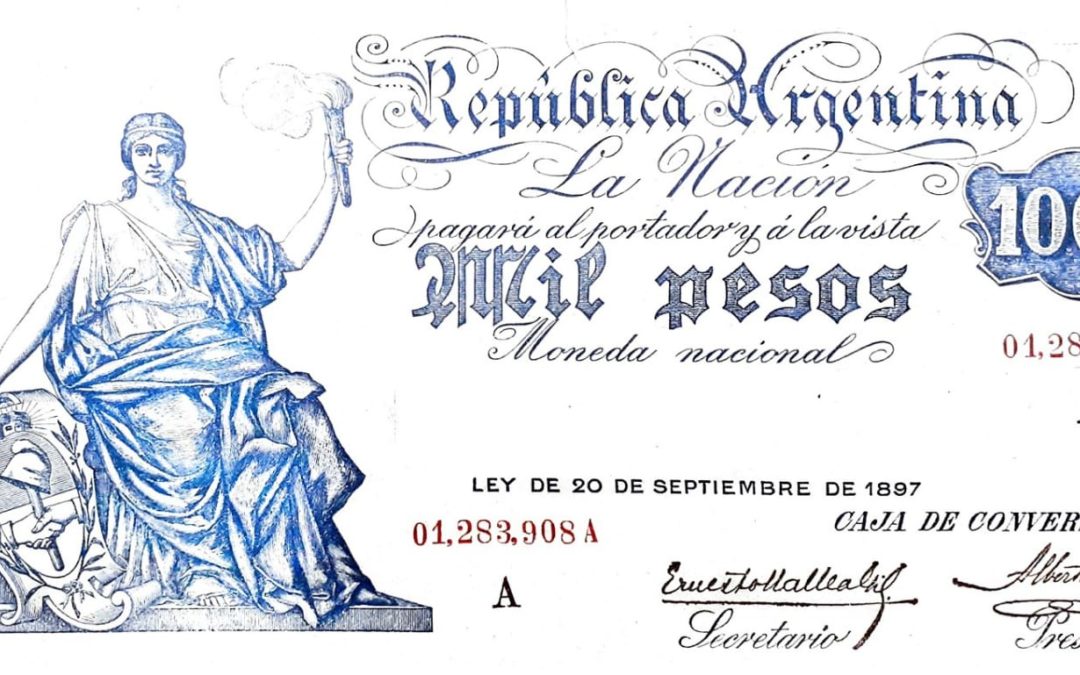 República Argentina
La Nación
pagará al portador y á la vista
Mil pesos
Moneda nacional
100
01,28
LEY DE 20 DE SEPTIEMBRE DE 1897
01,283,908 A
CAJA DE CONVER
A
Secretario
Albert
Pres